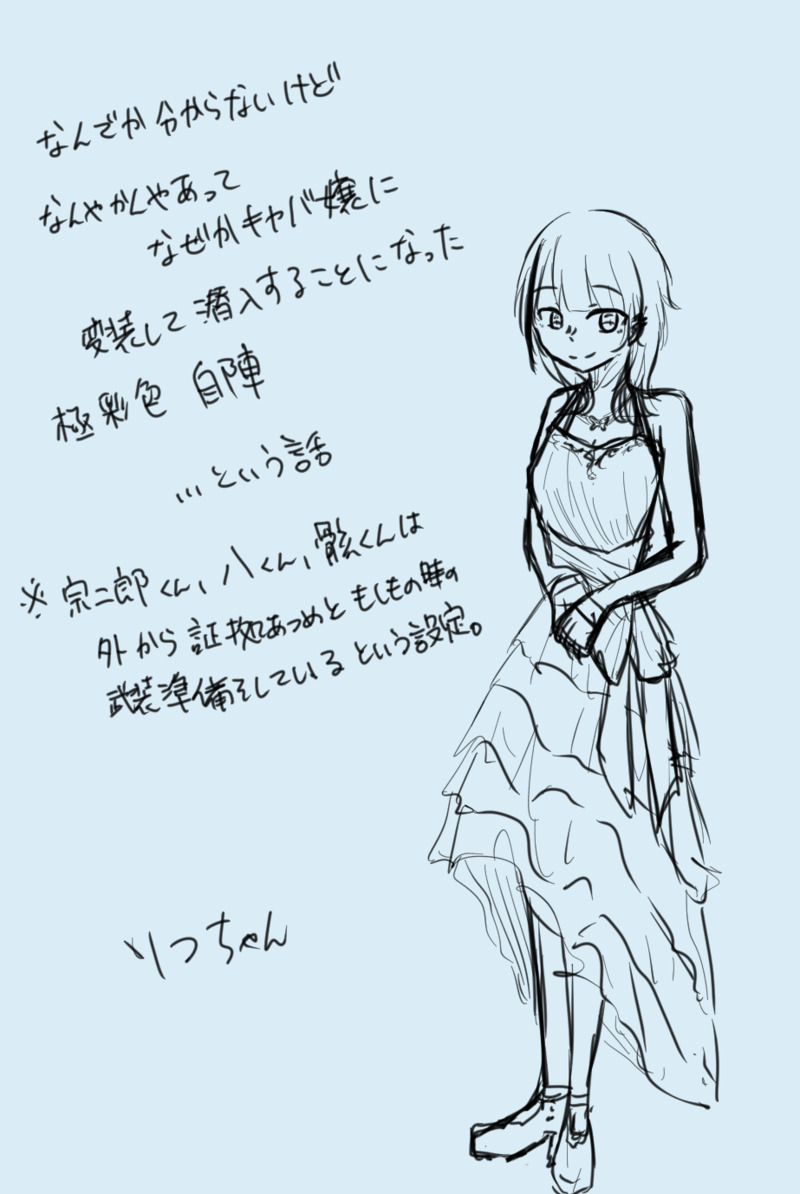 なんでか分からないけど
なんやかんやあって
なぜかキャバ嬢に
変装して潜入することになった
極彩色 自陣
…という話
※宗二郎くん、八くん、骸くんは
外から証拠あつめともしもの時の
武装準備をしているという設定。
りっちゃん